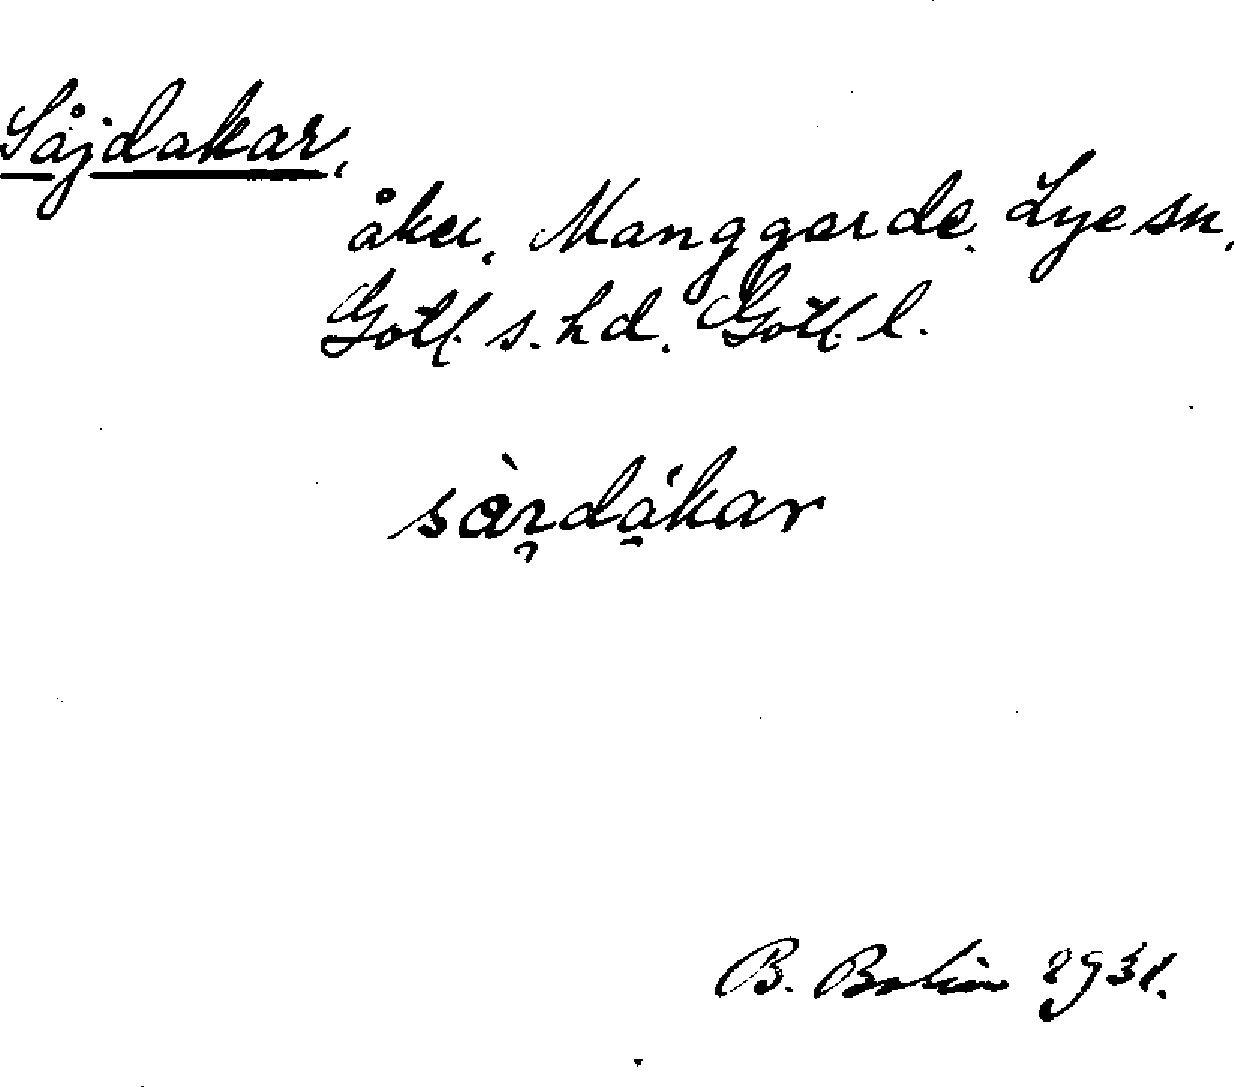 Såjdakar,
åker, Manggarde, Lye sn,
Gotl. s. hd. Gotl. l.
B. Bolin 1931.